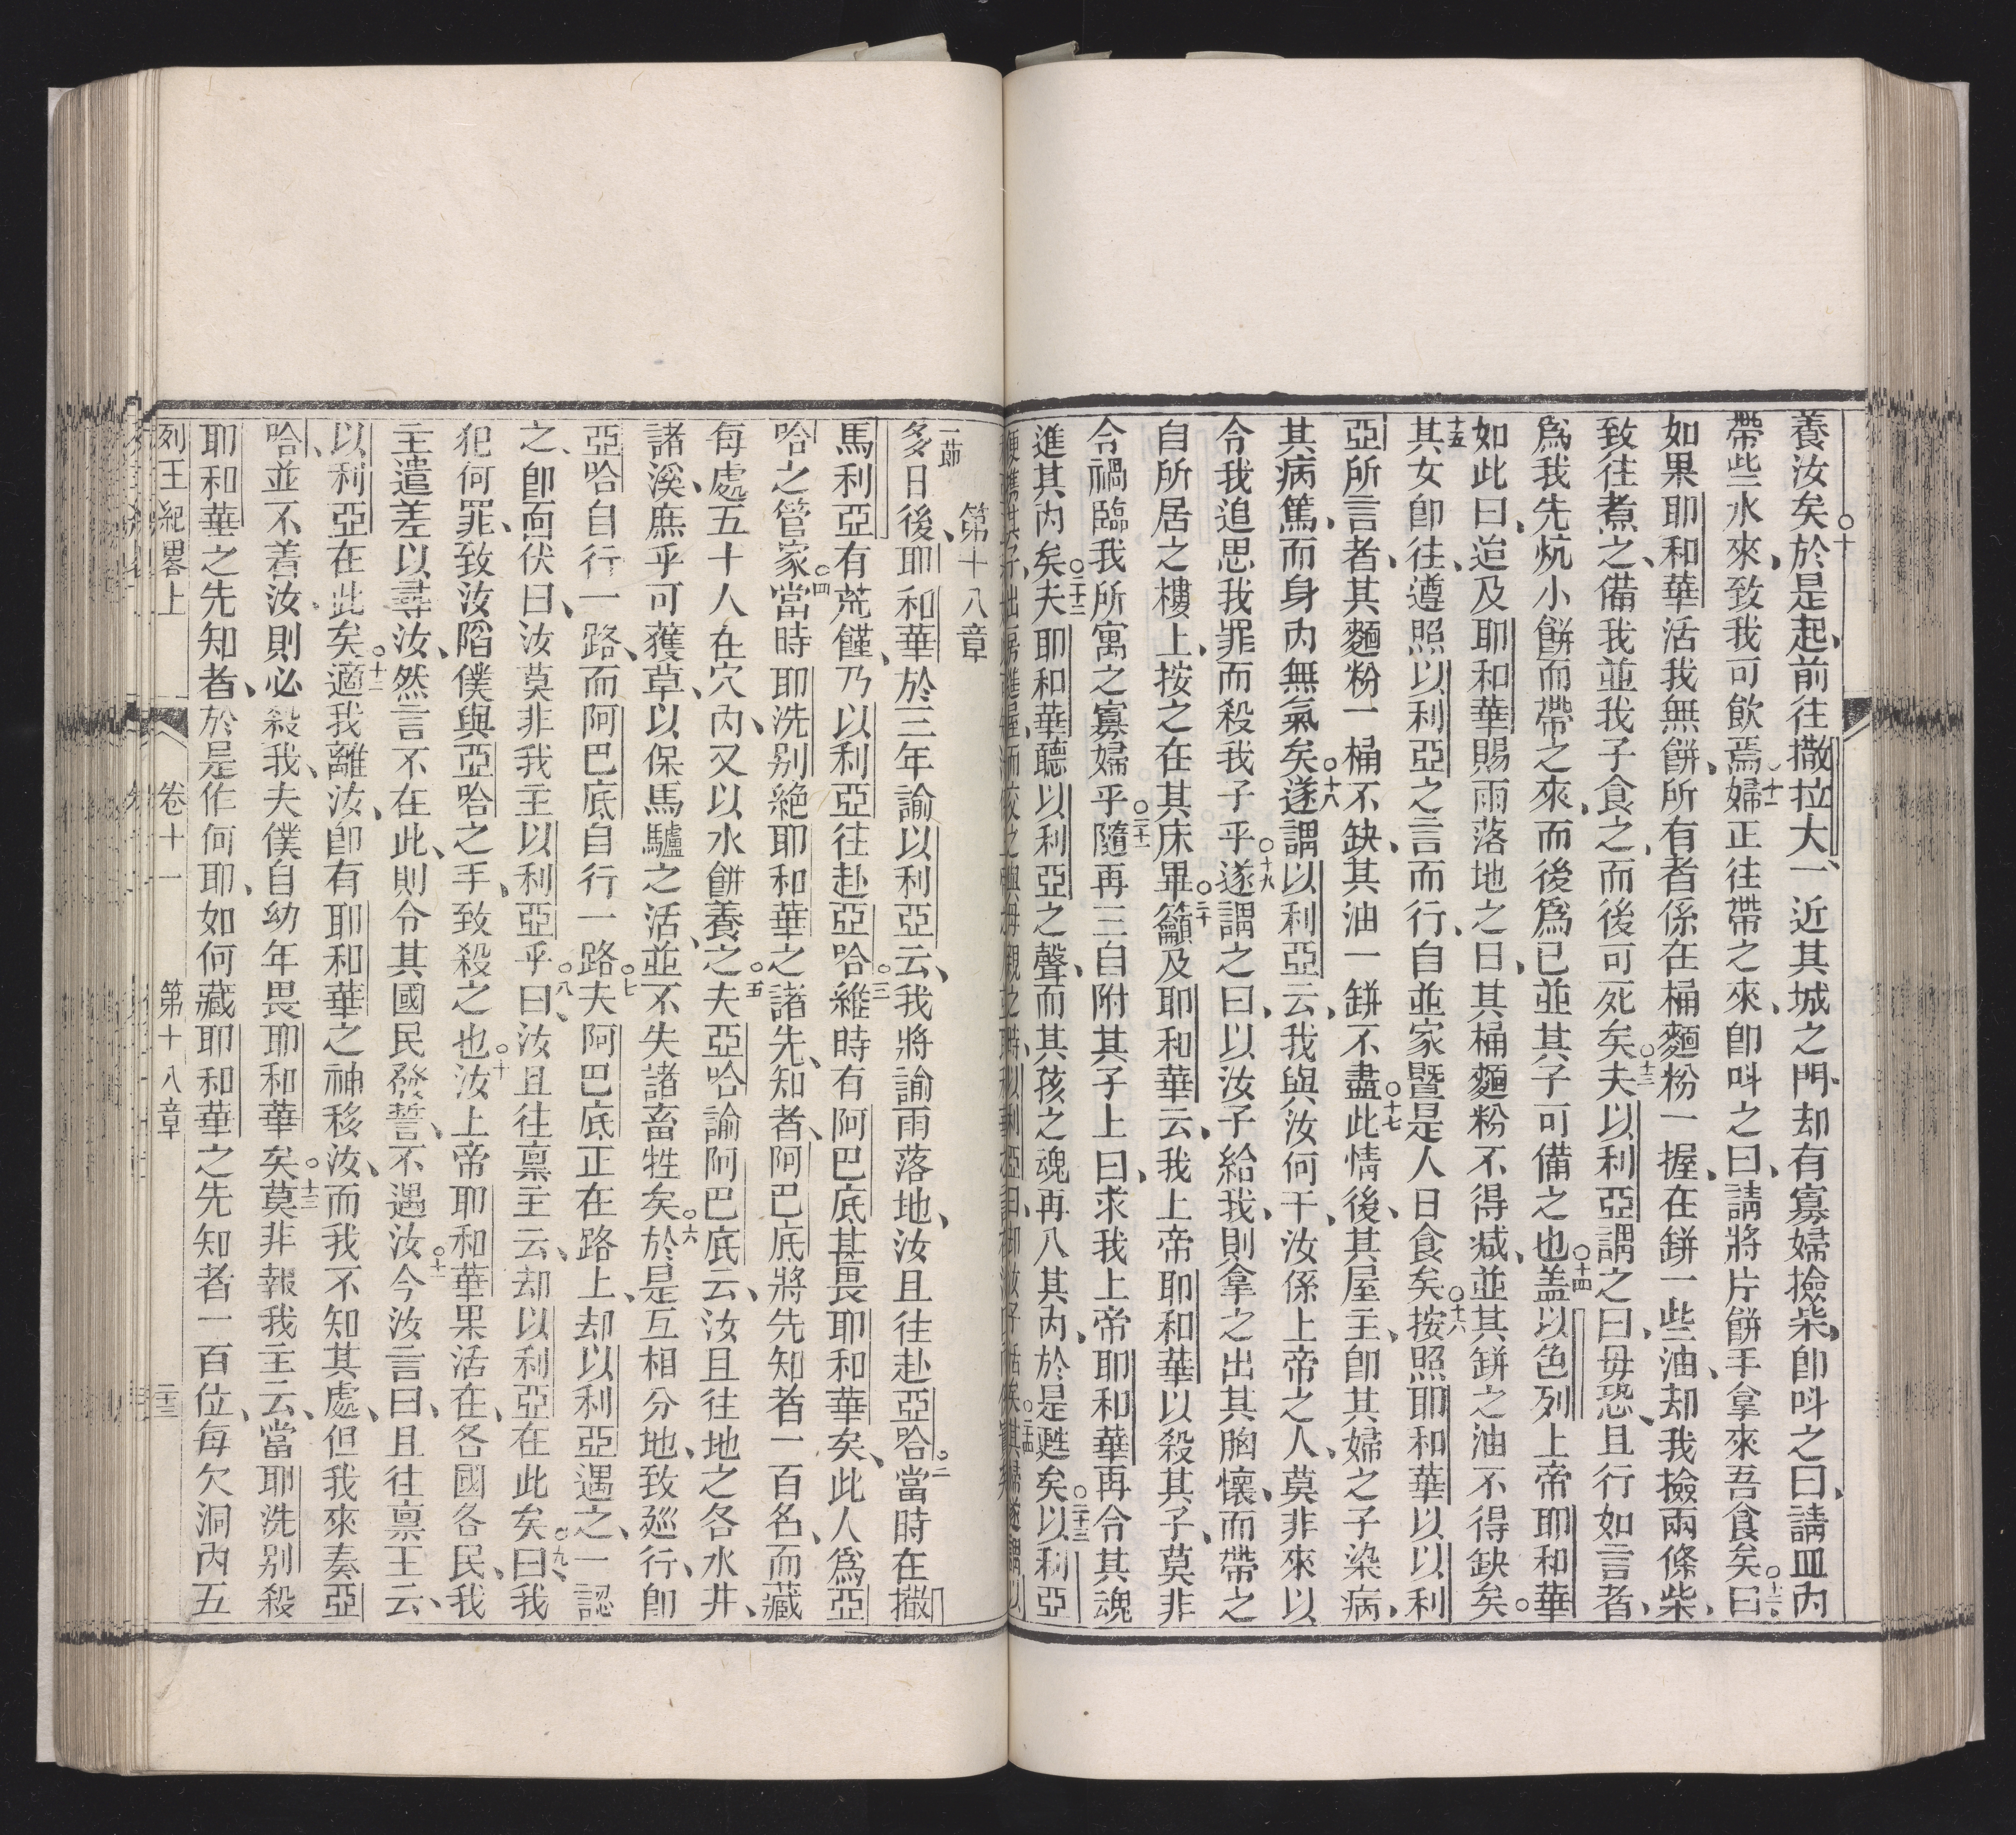 養汝矣○十於是起、前往撒拉大、一近其城之門、却有寡婦撿柴、卽呌之曰、請皿內
帶些水來、致我可飲焉○十一婦正往帶之來、卽呌之曰、請將片餅手拿來吾食矣○十二曰、
如果耶和華活我無餅、所有者係在桶麵粉一握、在缾一些油、却我撿兩條柴、
致往煮之、備我並我子食之、而後可死矣○十三夫以利亞謂之曰、毋恐、且行如言者、
爲我先炕小餅而帶之來、而後爲已並其子可備之也○十四盖以色列上帝耶和華
如此曰、迨及耶和華賜雨落地之日、其桶麵粉不得減、並其缾之油不得缺矣○
十五其女卽往、遵照以利亞之言而行、自並家曁是人日食矣○十六按照耶和華以以利
亞所言者、其麵粉一桶不缺、其油一缾不盡○十七此情後、其屋主、卽其婦之子染病、
其病篤、而身內無氣矣○十八遂謂以利亞云、我與汝何干、汝係上帝之人、莫非來以
令我追思我罪而殺我子乎○十九遂謂之曰、以汝子給我、則拿之出其胸懷、而帶之
自所居之樓上、按之在其床畢○二十籲及耶和華云、我上帝耶和華以殺其子、莫非
令禍臨我所寓之寡婦乎○二十一隨再三自附其子上曰、求我上帝耶和華再令其魂
進其內矣○二十二夫耶和華聽以利亞之聲、而其孩之魂再入其內、於是甦矣○二十三以利亞
便攜其子、出房進屋、而交之與母親之時、以利亞曰、卽汝子活矣○二十四其婦遂謂以
第十八章
一節多日後、耶和華於三年諭以利亞云、我將諭雨落地、汝且往赴亞哈○二當時在撒
馬利亞有荒饉、乃以利亞往赴亞哈○三維時有阿巴底甚畏耶和華矣、此人爲亞
哈之管家○四當時耶洗别絶耶和華之諸先知者、阿巴底將先知者一百名、而藏
每處五十人在穴內、又以水餅養之○五夫亞哈諭阿巴底云、汝且往地之各水井、
諸溪、庶乎可獲草、以保馬驢之活、並不失諸畜牲矣○六於是互相分地、致廵行、卽
亞哈自行一路、而阿巴底自行一路○七夫阿巴底正在路上、却以利亞遇之、一認
之、卽面伏曰、汝莫非我主以利亞乎○八曰、汝且往禀主云、却以利亞在此矣○九曰、我
犯何罪、致汝陷僕與亞哈之手、致殺之也○十汝上帝耶和華果活在、各國各民、我
主遣差以尋汝、然言不在此、則令其國民發誓、不遇汝○十一今汝言曰、且往禀王云、
以利亞在此矣○十二適我離汝、卽有耶和華之神移汝、而我不知其處、但我來奏亞
哈、並不着汝、則必殺我、夫僕自幼年畏耶和華矣○十三莫非報我主云、當耶洗别殺
耶和華之先知者、於是作何耶、如何藏耶和華之先知者一百位、每欠洞內五
列王紀畧上 卷十一 第十八章 二十三